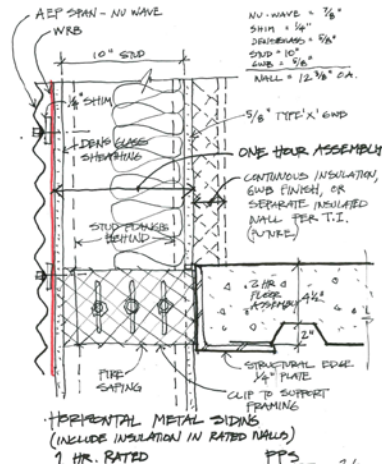 AEP SPAN - NU WAVE
WRB
10" STUD
NU-WAVE = 7/8"
SHIM = 1/4"
DENSGLASS = 5/8"
STUD = 10"
GWB = 5/8"
WALL = 12 3/8" O.A.
1/4" SHIM
5/8" TYPE 'X' GWB
DENSGLASS
SHEATHING
ONE HOUR ASSEMBLY
CONTINUOUS INSULATION,
GWB FINISH, OR
SEPARATE INSULATED
WALL PER T.I.
(FUTURE)
STUD FLANGE
BEHIND
2 HR
FLOOR
ASSEMBLY
4 1/2"
2"
STRUCTURAL EDGE
1/4" PLATE
FIRE
SAFING
CLIP TO SUPPORT
FRAMING
HORIZONTAL METAL SIDING
(INCLUDE INSULATION IN RATED WALLS)
1 HR. RATED